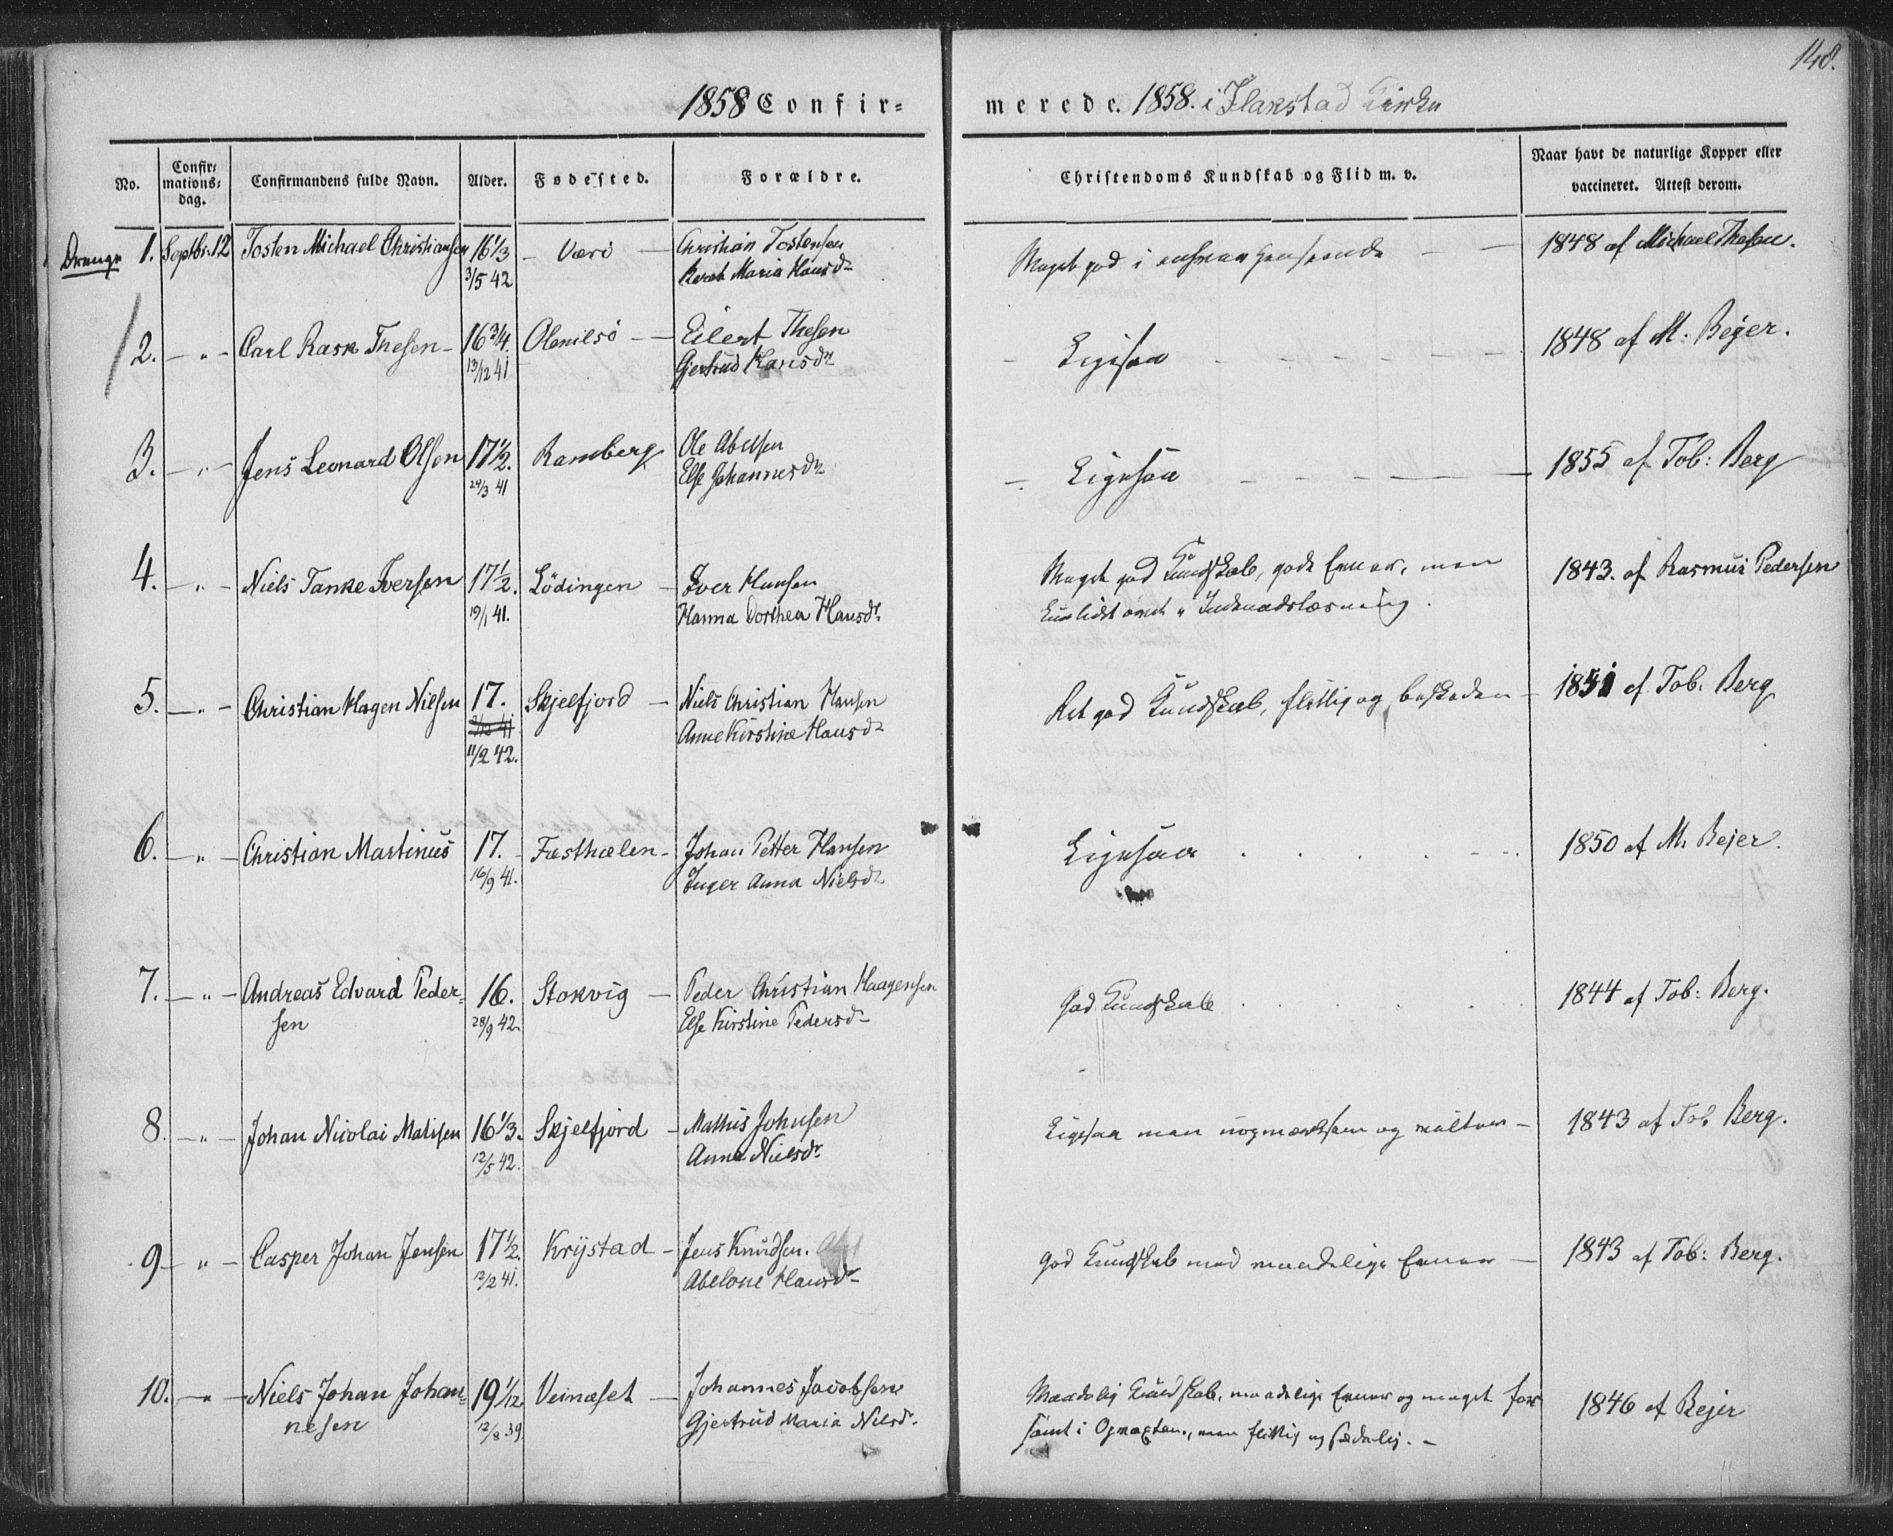 148.
1858 Confir= merede. 1858. i Flakstad Kirke
No. Confir=mations=dag. Confirmandens fulde Navn. Alder. Fødested. Forældre. Christendoms Kundskab og Flid m. v. Naar havt de naturlige Kopper eller vaccineret. Attest derom.
Drenge 1. Septbr. 12 Tosten Michael Christiansen 16 1/3 Værö Christian Tostensen Meget god i enhver Henseende 1848 af Michael Thesen.
3/5 42 Beret Maria Hansdr
2. " Carl Rask Thesen 16 3/4. Olenilsö Eilert Thesen Ligesaa 1848 af M. Bejer.
13/12 41 Gjertrud Hansdr
3. " Jens Leonard Olsen 17 1/2. Ramberg Ole Abelsen Ligesaa 1855 af Tob: Berg
24/3 41 Else Johannesdr
4. " Niels Tanke Iversen 17 1/2. Lödingen Iver Hansen Meget god Kundskab, gode Evner, men 1843. af Rasmus Pedersen
19/1 41. Hanna Dorthea Hansdr. kun lidt övet i Indenadslæsning.
5. " Christian Hagen Nilsen 17. Skjelfjord Niels Christian Hansen Ret god Kundskab, flittig og beskeden 1851 af Tob. Berg
11/2 42. Anne Kirstine Hansdr
6. " Christian Martinus 17. Fasthælen Johan Petter Hansen Ligesaa 1850 af M. Bejer.
16/9 41. Inger Anna Nielsdr
7. " Andreas Edvard Peder= 16. Stokvig Peder Christian Haagensen God Kundskab 1844 af Tob: Berg.
sen 28/9 42. Else Kirstine Pedersdr
8. " Johan Nicolai Matisen 16 1/3. Skjelfjord Mathis Johnsen Ligesaa men uopmærksom og 1843 af Tob Berg.
12/5 42. Anne Nielsdr.
9 " Casper Johan Jensen 17 1/2. Krystad Jens Knudsen. God Kundskab med maadelige Evner 1843 af Tob: Berg.
12/2 41. Abelone Hansdr
10. " Niels Johan Johan= 19 1/12 Veinæset Johannes Jacobsen Maadelig Kundskab, maadelige Evner og meget for= 1846 af Bejer
nesen 12/8 39. Gjertrud Maria Nilsdr. sömt i Opvæxten, men flittig og sædelig.